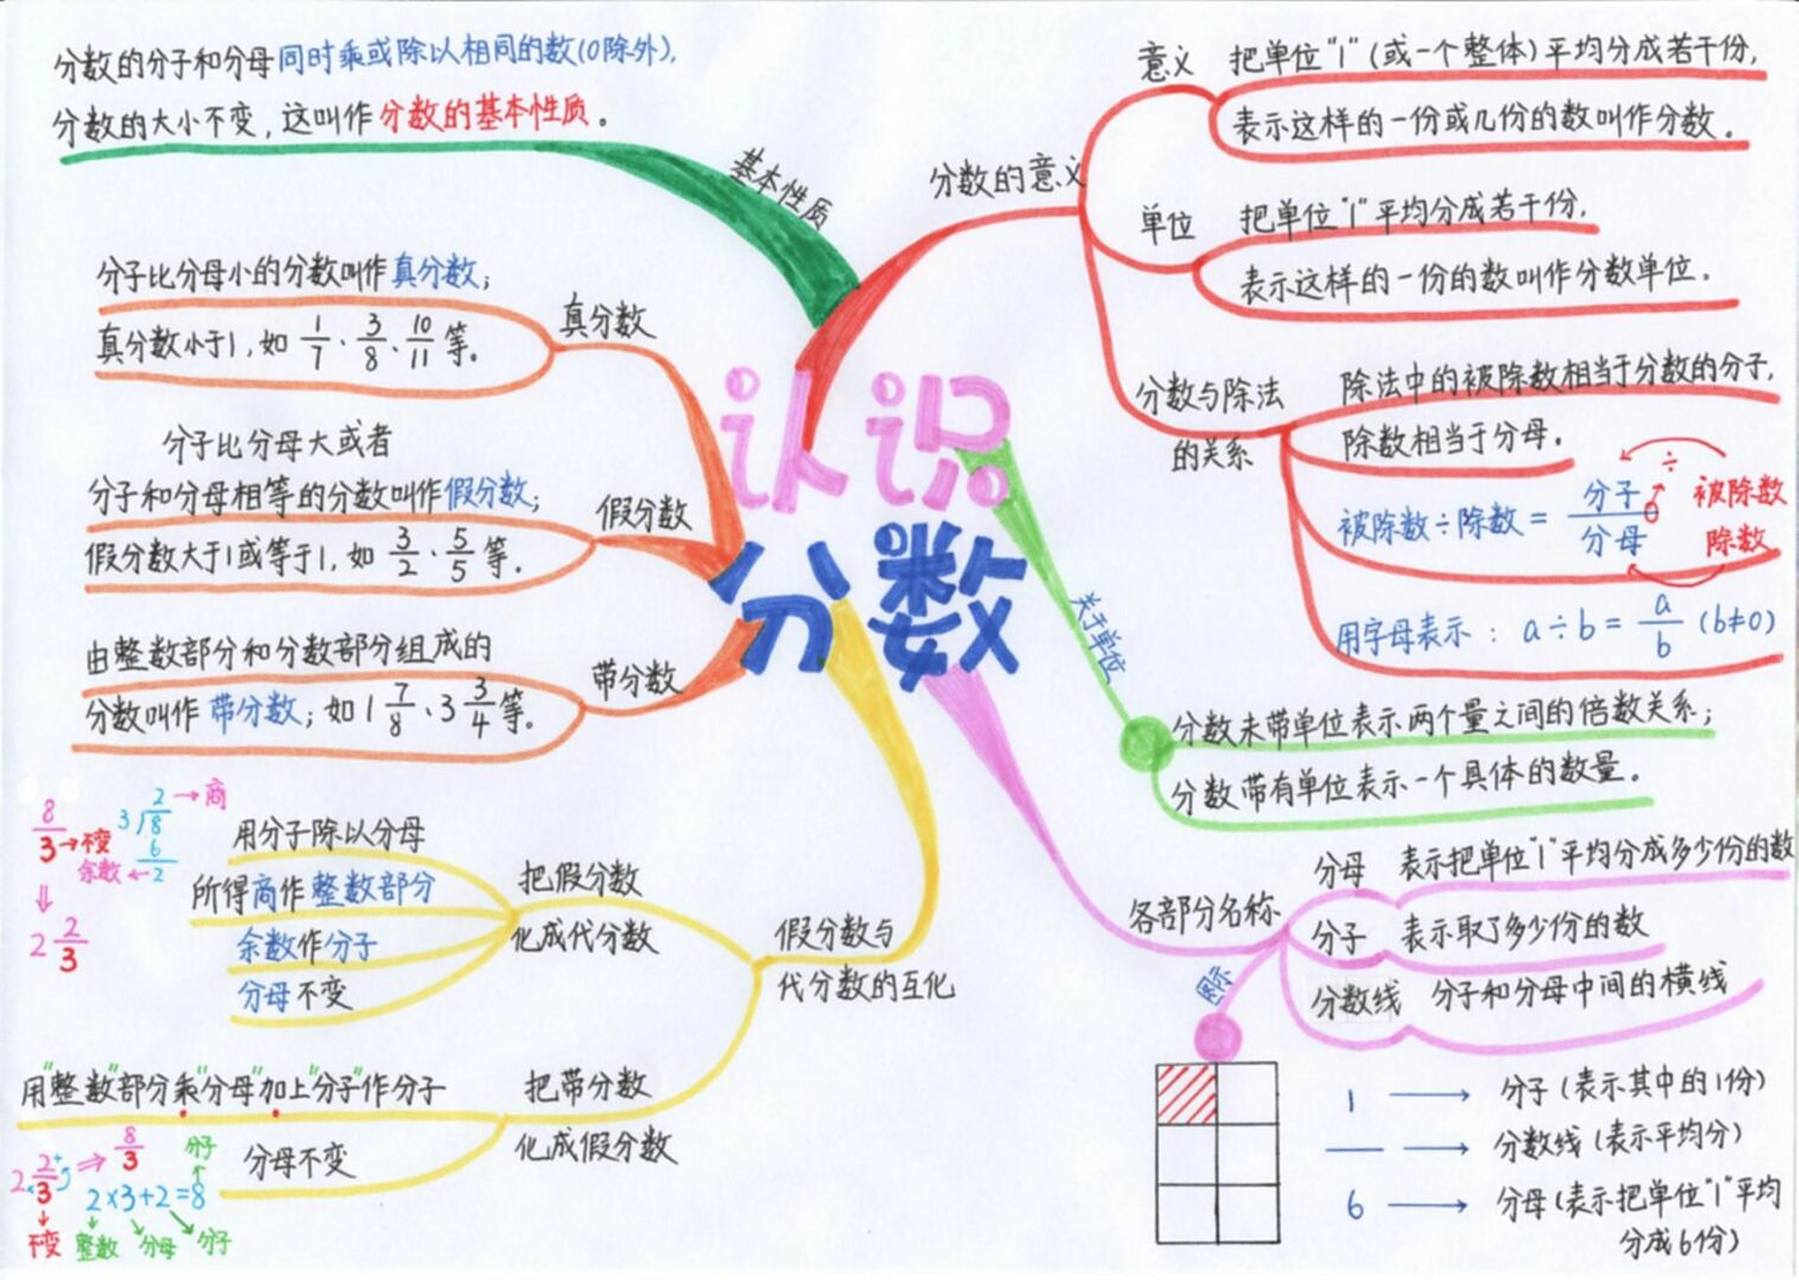 分数的分子和分母同时乘或除以相同的数(0除外),
分数的大小不变,这叫作分数的基本性质。
基本性质
分子比分母小的分数叫作真分数;
真分数小于1,如 1/7、3/8、10/11 等。
真分数
分子比分母大或者
分子和分母相等的分数叫作假分数;
假分数大于1或等于1,如 3/2、5/5 等。
假分数
由整数部分和分数部分组成的
分数叫作带分数;如 1 7/8、3 3/4 等。
带分数
认识
分数
分数的意义
意义
把单位"1"(或一个整体)平均分成若干份,
表示这样的一份或几份的数叫作分数。
单位
把单位"1"平均分成若干份,
表示这样的一份的数叫作分数单位.
分数与除法
的关系
除法中的被除数相当于分数的分子,
除数相当于分母.
÷
被除数÷除数= 分子/分母
被除数
除数
用字母表示: a÷b= a/b (b≠0)
关于单位
分数未带单位表示两个量之间的倍数关系;
分数带有单位表示一个具体的数量.
各部分名称
分母
表示把单位"1"平均分成多少份的数
分子
表示取了多少份的数
分数线
分子和分母中间的横线
图示
1 → 分子(表示其中的1份)
— → 分数线(表示平均分)
6 → 分母(表示把单位"1"平均
分成6份)
假分数与
代分数的互化
把假分数
化成代分数
用分子除以分母
所得商作整数部分
余数作分子
分母不变
8/3 →不变
2 →商
3 8
6
余数 ←2
⇓
2 2/3
把带分数
化成假分数
用"整数"部分乘"分母"加上"分子"作分子
分母不变
2 2/3 ⇒ 8/3
×
+
分子
↑
2×3+2=8
不变
整数
分母
分子